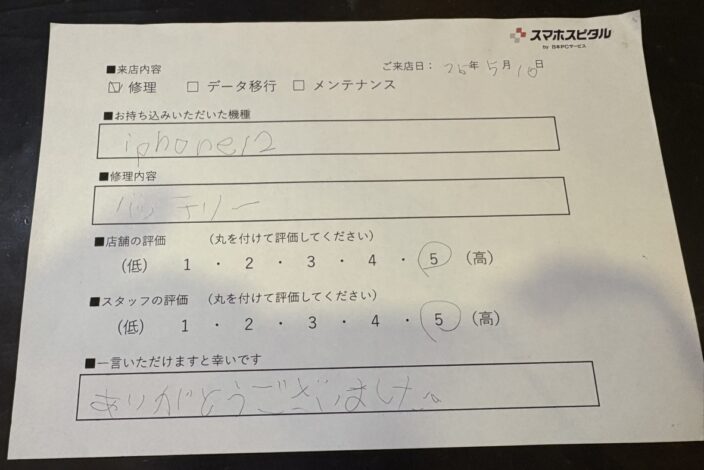 スマホスピタル
by 日本PCサービス
ご来店日： 26年 5月 10日
■来店内容
☑ 修理 □ データ移行 □ メンテナンス
■お持ち込みいただいた機種
iphone12
■修理内容
バッテリー
■店舗の評価 （丸を付けて評価してください）
（低） 1 ・ 2 ・ 3 ・ 4 ・ 5 （高）
■スタッフの評価 （丸を付けて評価してください）
（低） 1 ・ 2 ・ 3 ・ 4 ・ 5 （高）
■一言いただけますと幸いです
ありがとうございました。